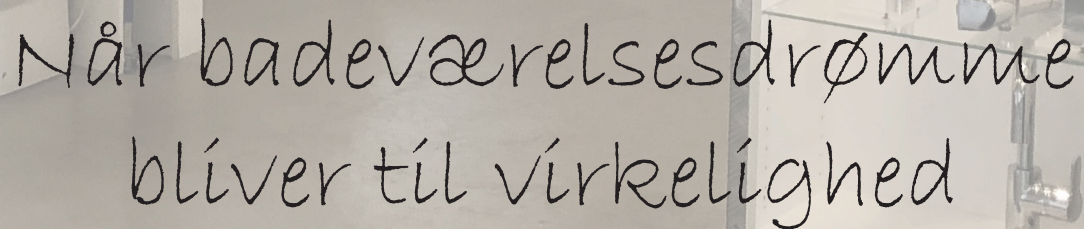 Når badeværelsesdrømme
bliver til virkelighed